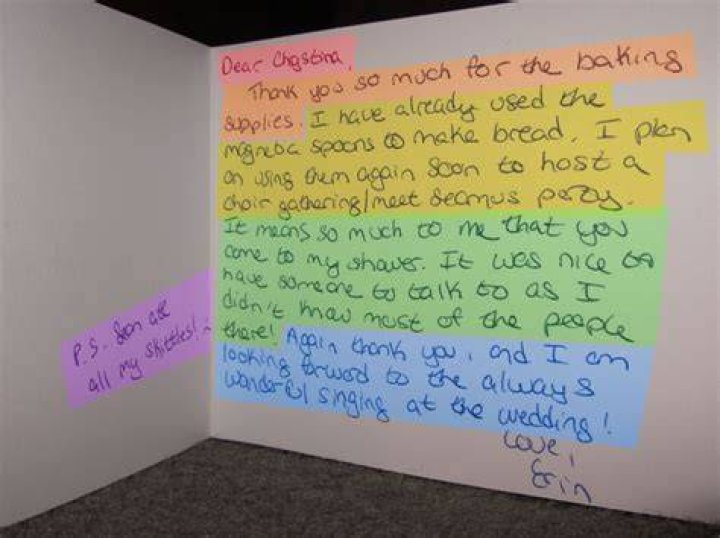 Dear Chastina,
Thank you so much for the baking
supplies. I have already used the
magnetic spoons to make bread. I plan
on using them again soon to host a
choir gathering/meet Seamus party.
It means so much to me that you
came to my shower. It was nice to
have someone to talk to as I
didn't know most of the people
there! Again thank you, and I am
looking forward to the always
wonderful singing at the wedding!
Love,
Erin
P.S. Sean ate
all my skittles! :)